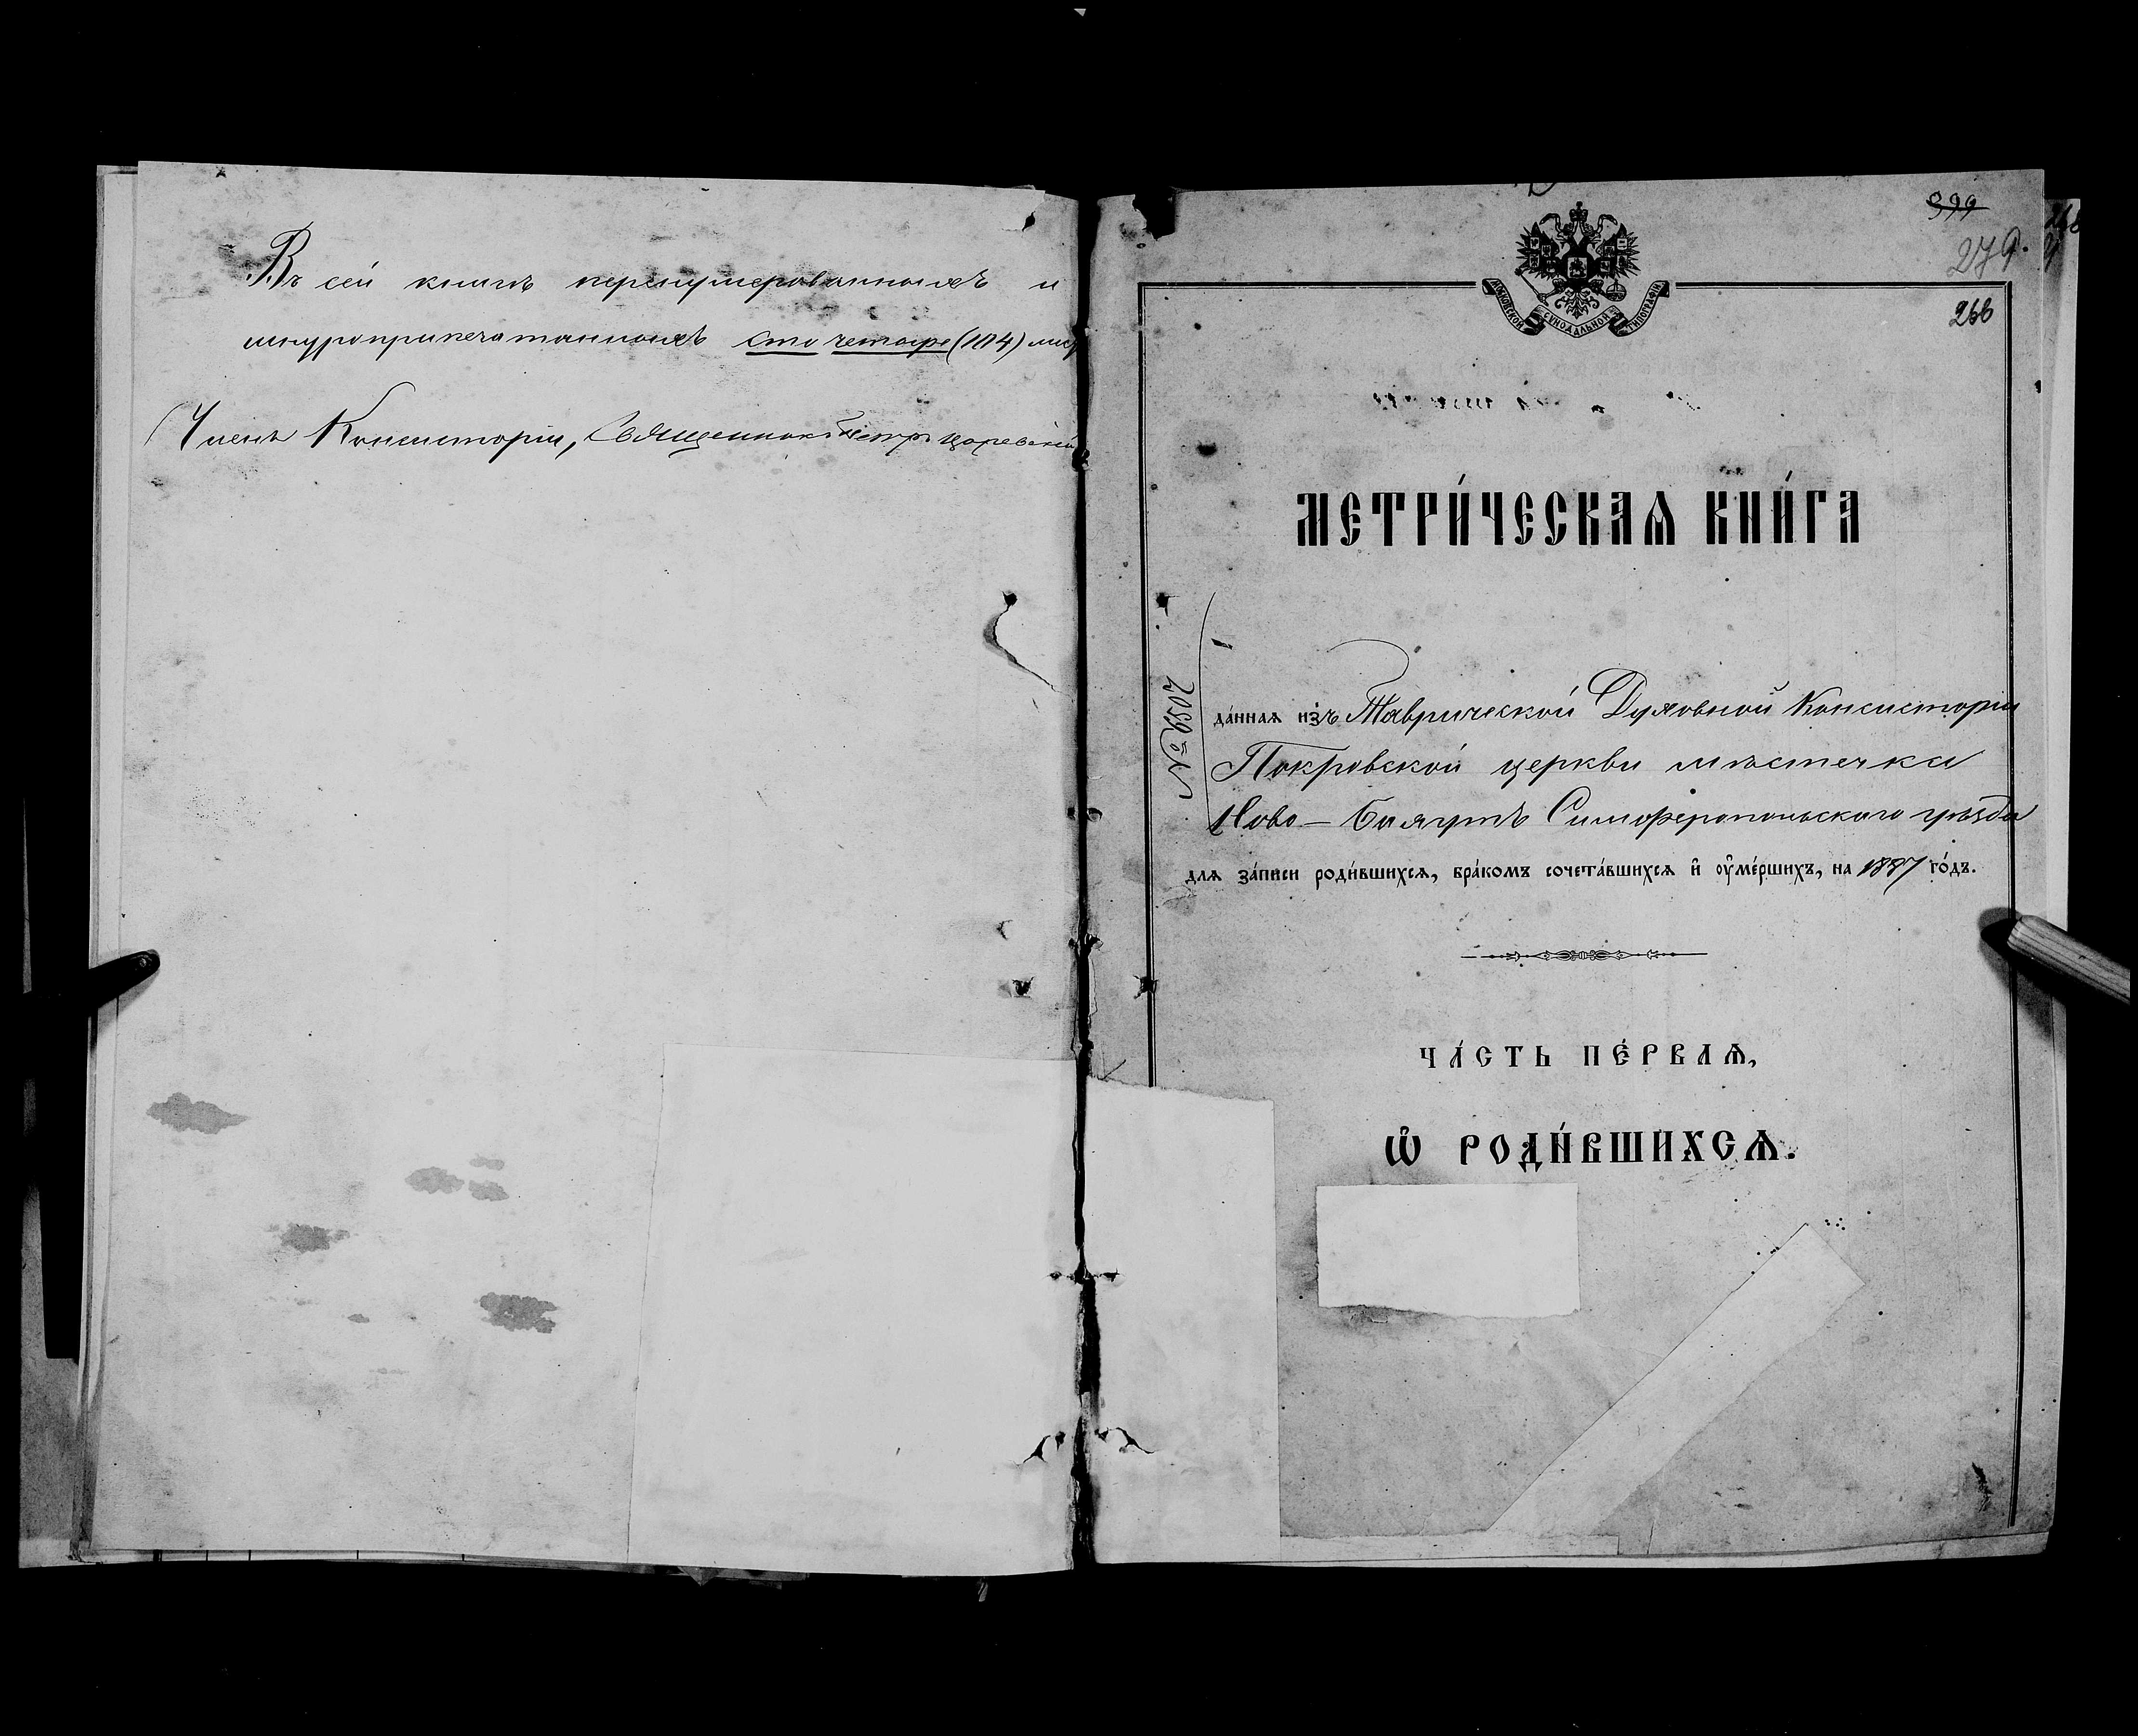 Въ сей книгѣ перенумерованныхъ и
шнуроприпечатанныхъ сто четыре (104) лис
Членъ Консисторіи, Священникъ Петръ Царевскій
399
279.
266
МОСКОВСКОЙ СѴНОДАЛЬНОЙ ТИПОГРАФІИ
МЕТРИ́ЧЕСКАѦ КНИ́ГА
№ 6502
да́ннаѧ из̾ъ Таврической Духовной Консисторіи
Покровской церкви мѣстечка
Ново-Баяутъ Симферопольскаго уѣзда
длѧ за́писи роди́вшихсѧ, бра́комъ сочета́вшихсѧ и҆ оу҆ме́ршихъ, на 1887 го́дъ.
ЧА́СТЬ ПЕ́РВАѦ,
Ѽ РОДИ́ВШИХСѦ.